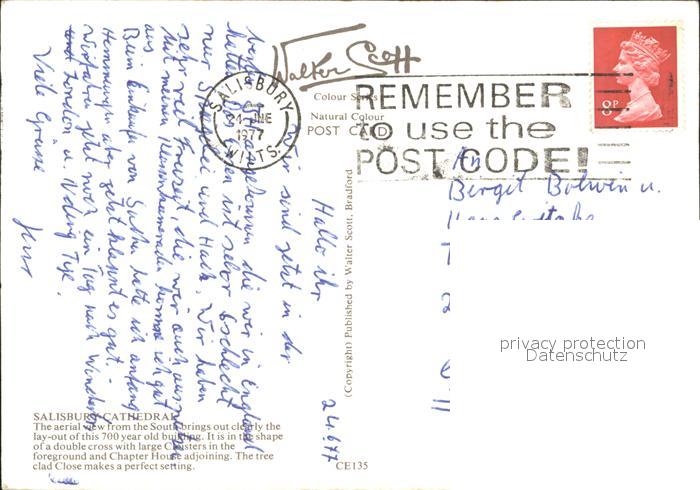 Walter Scott
Colour Series
Natural Colour
POST CARD
SALISBURY
24 JNE
1977
WILTS.
REMEMBER
to use the
POST CODE!
8P
An
Birgit u.
24.6.77
Hallo ihr
Wir sind jetzt in der
die wir in England
haben. Das Essen ist sehr schlecht
nur und Hack. Wir haben
sehr viel Freizeit, die wir auch ausnutzen.
Mit meinen komme ich gut
aus
Beim Einkaufen von Sachen hatte ich anfangs
Hemmungen aber jetzt klappt es gut. -
Wir fahren jetzt noch ein Tag nach Windsor
und London u.
Viele Grüsse
Jens
(Copyright) Published by Walter Scott, Bradford
SALISBURY CATHEDRAL
The aerial view from the South brings out clearly the
lay-out of this 700 year old building. It is in the shape
of a double cross with large Cloisters in the
foreground and Chapter House adjoining. The tree
clad Close makes a perfect setting.
CE135
privacy protection
Datenschutz